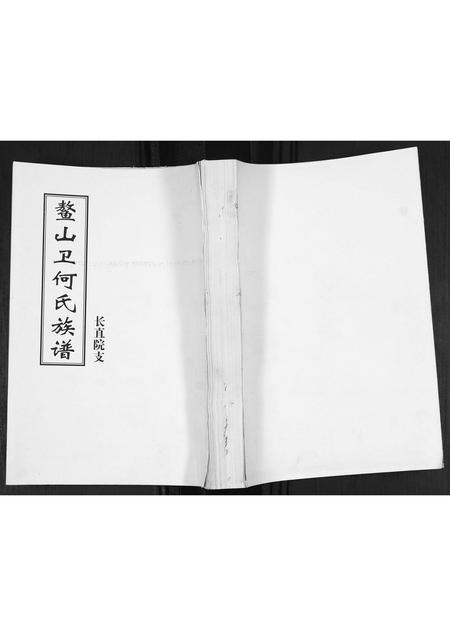 鳌山卫何氏族谱
长直院支